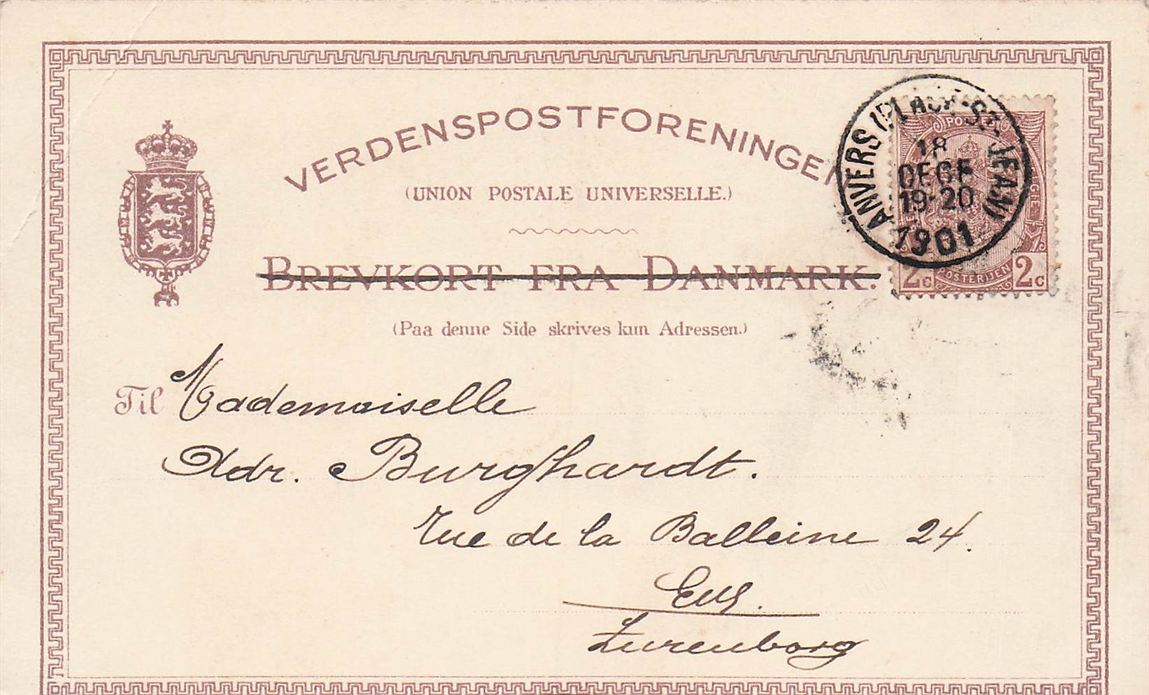 VERDENSPOSTFORENINGEN
(UNION POSTALE UNIVERSELLE.)
BREVKORT FRA DANMARK.
(Paa denne Side skrives kun Adressen.)
ANVERS (PLACE-St-JEAN)
18
DECE
19-20
1901
2c POSTERIJEN 2c
Til Mademoiselle
Adr. Burghardt.
Rue de la Balleine 24.
E/V.
Zurenborg